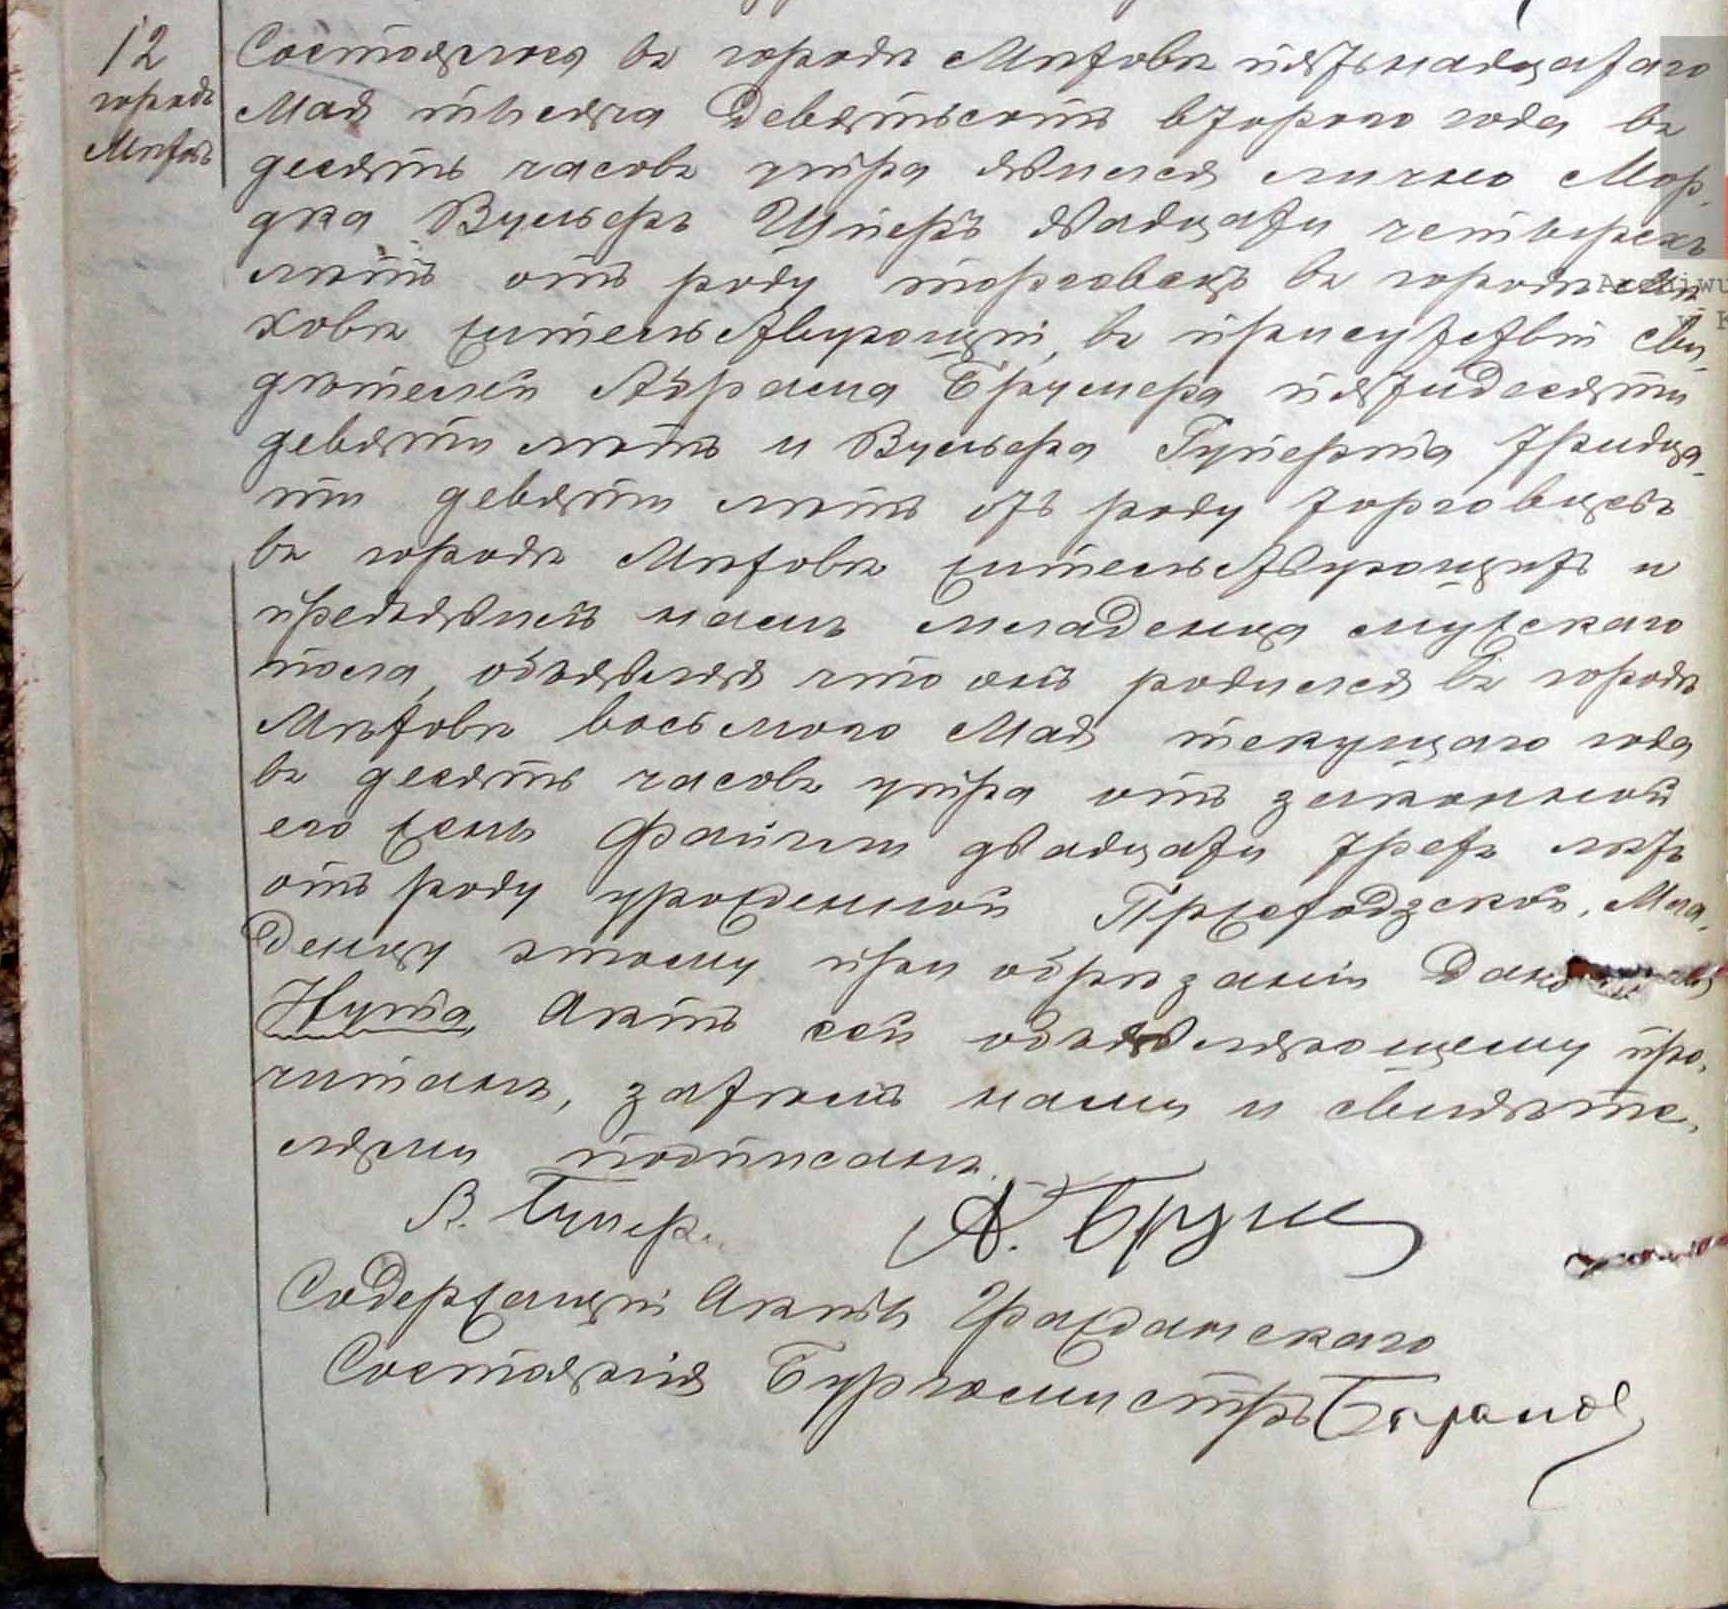 12
городъ
Мѣховъ
Состоялось въ городѣ Мѣховѣ пятьнадцатаго
Мая тысяча девятьсотъ второго года въ
десять часовъ утра явился лично Мор-
дка Вульфъ Шперъ двадцати четырехъ
лѣтъ отъ роду торговецъ въ городѣ Мѣ-
ховѣ жительствующій, въ присутствіи сви-
дѣтелей Абрама Брумера пятидесяти
девяти лѣтъ и Вульфа Гиперта тридца-
ти девяти лѣтъ отъ роду торговцевъ
въ городѣ Мѣховѣ жительствующихъ и
предъявилъ намъ младенца мужскаго
пола, объявляя что онъ родился въ городѣ
Мѣховѣ восьмого Мая текущаго года
въ десять часовъ утра отъ законной
его жены Файгли двадцати трехъ лѣтъ
отъ роду урожденной Пржегодзской. Мла-
денцу этому при обрѣзаніи дано
Нута Актъ сей объявляющему про-
читанъ, затѣмъ нами и свидѣте-
лями подписанъ.
А. Брум
Содержащій Акты Гражданскаго
Состоянія Бургомистръ
Archiwu
K